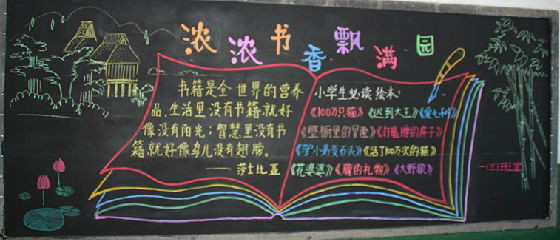 浓浓书香飘满园
书籍是全世界的营养
品。生活里没有书籍就好
像没有阳光；智慧里没有书
籍就好像鸟儿没有翅膀。
——莎士比亚
小学生必读绘本
《100万只猫》《迟到大王》《爱心树》
《打瞌睡的房子》
《活了100万次的猫》
《花婆婆》《魔的礼物》《大野狼》